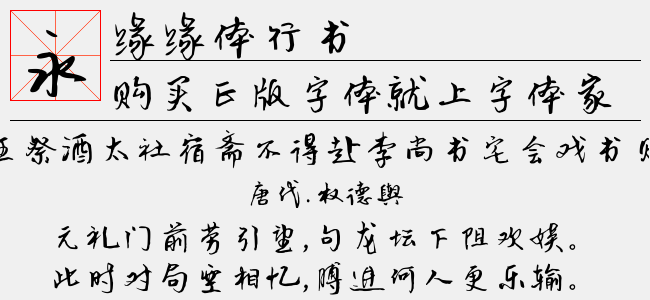 永
缘缘体行书
购买正版字体就上字体家
王祭酒太社宿斋不得赴李尚书宅会戏书
唐代.权德舆
元礼门前劳引望,句龙坛下阻欢娱。
此时对局空相忆,博进何人更乐输。